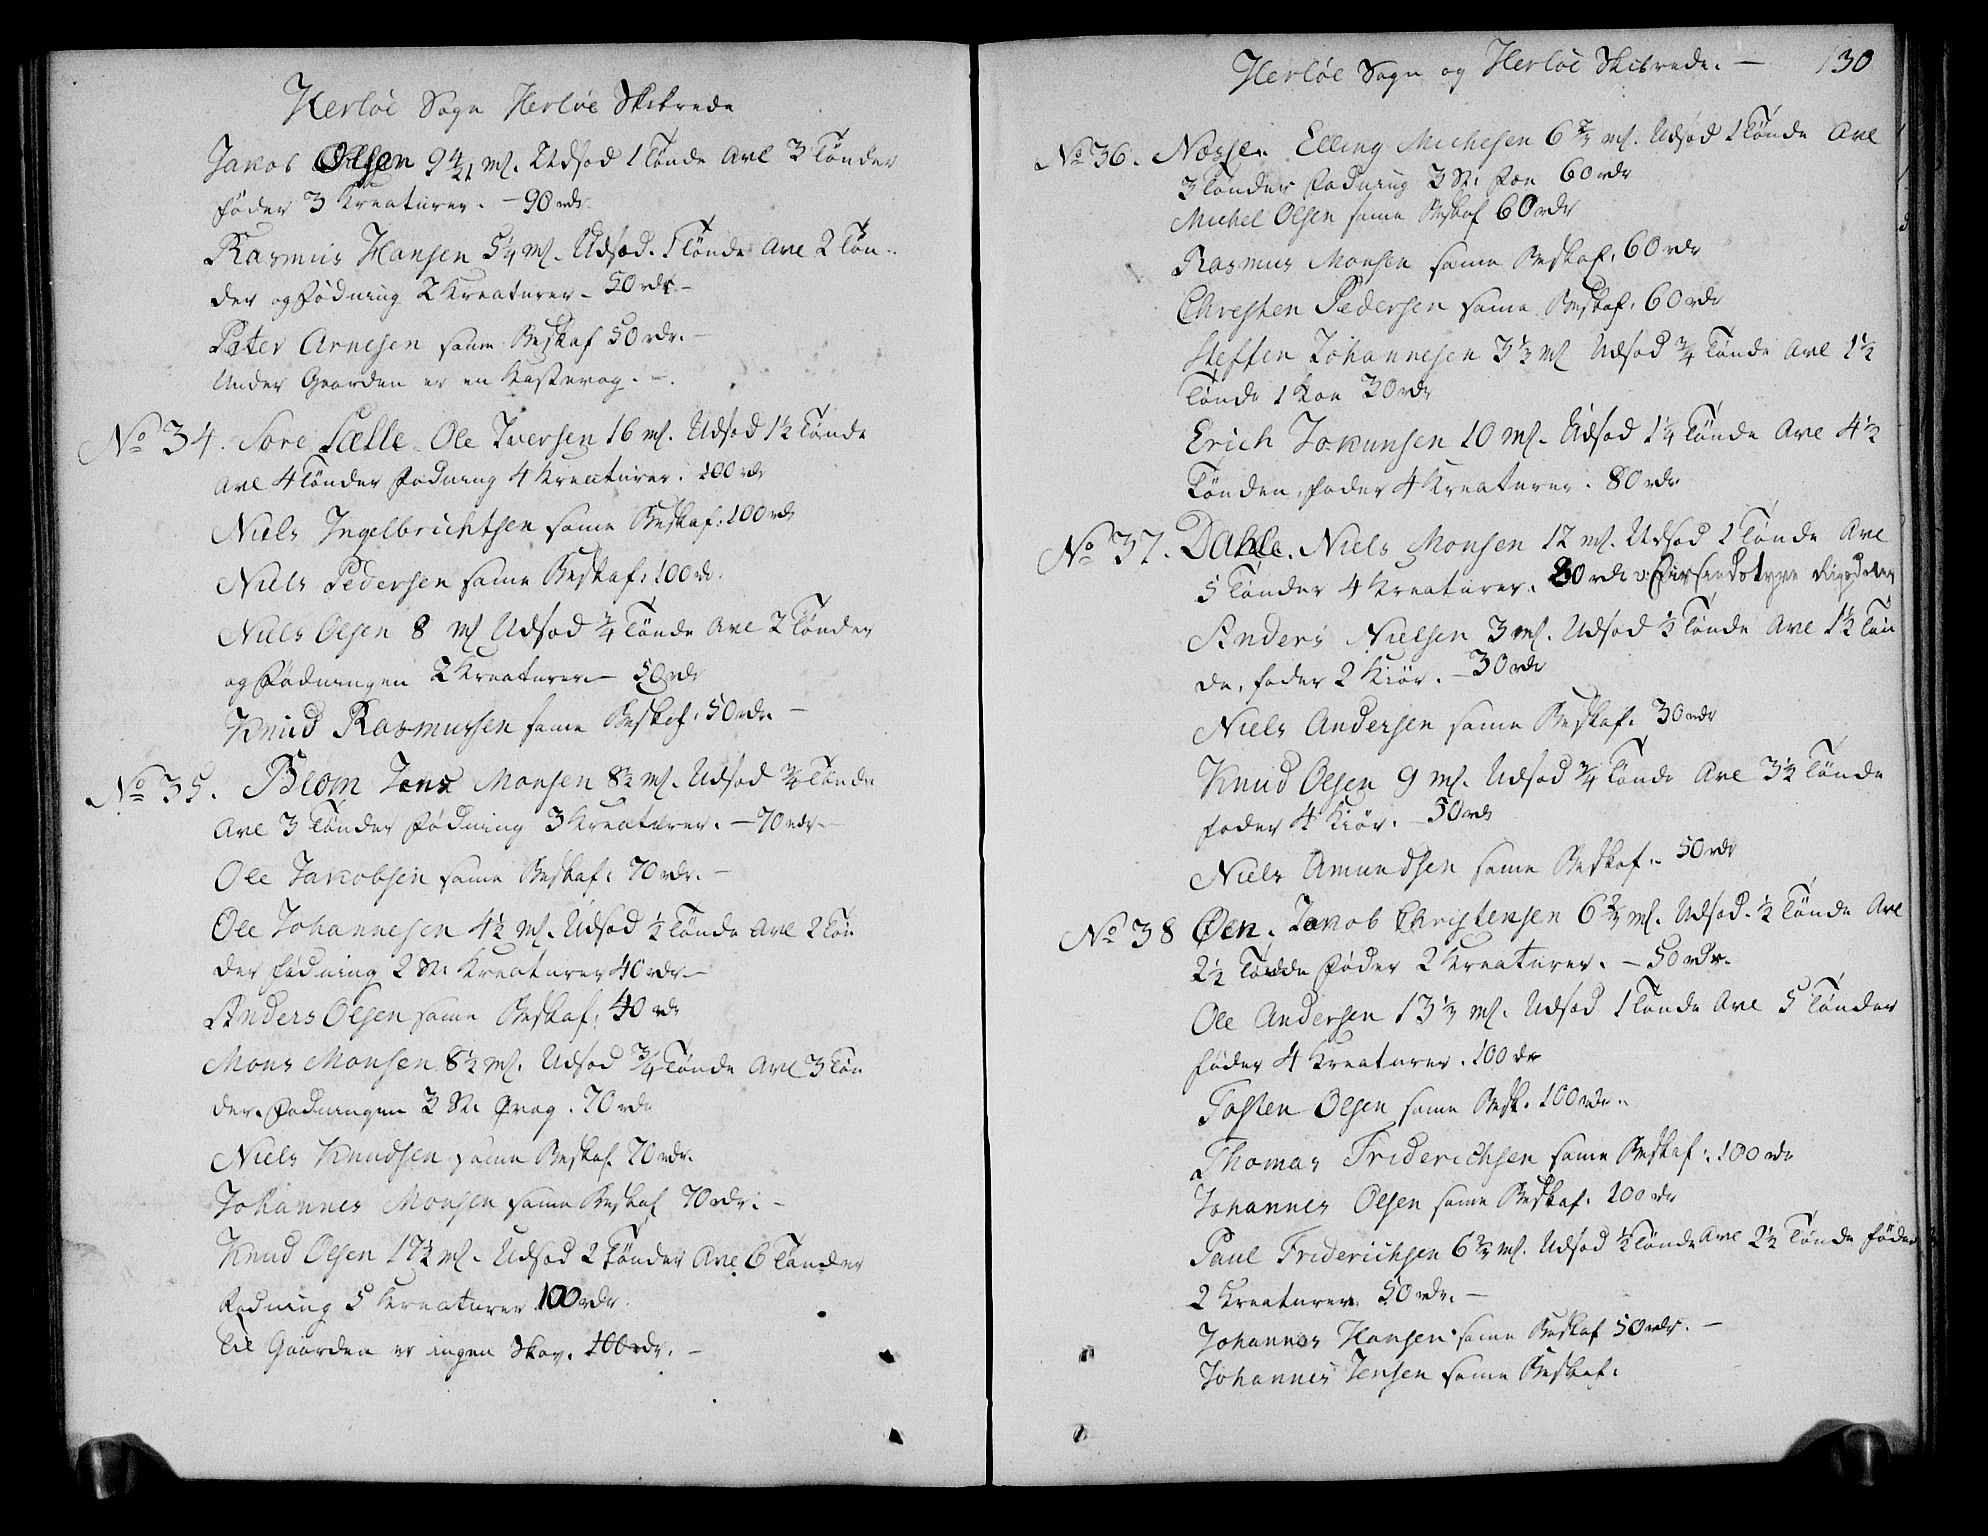 Herløe Sogn Herløe Skibrede
Jakob Olsen 9 4/21 ml. Udsød 1 Tønde Avl 3 Tønder
føder 3 Kreaturer. – 90 rdr.
Rasmus Hansen 5 1/4 ml. Udsød. 1 Tønde Avl 2 Tøn-
der og Fødning 2 Kreaturer – 50 rdr. –
Peter Arnesen same Beskaf 50 rdr. –
Under Gaarden er en Kastevog. –.
No 34. Tore Sætle Ole Iversen 16 ml. Udsød 1 1/2 Tønde
Avl 4 Tønder Fødning 4 Kreaturer. 100 rdr
Niels Ingelbrichtsen same Beskaf: 100 rdr
Niels Pedersen same Beskaf: 100 rdr.
Niels Olsen 8 ml Udsød 3/4 Tønde Avl 2 Tønder
og Fødningen 2 Kreaturer – 50 rdr
Knud Rasmussen same Beskaf: 50 rdr. –
No 35. Blom Jens Monsen 8 1/2 ml. Udsød 3/4 Tønde
Avl 3 Tønder Fødning 3 Kreaturer. – 70 rdr. –
Ole Jakobsen same Beskaf: 70 rdr. –
Ole Johannesen 4 1/2 ml. Udsød 1/2 Tønde Avl 2 Tøn
der fødning 2 St: Kreaturer 40 rdr –
Anders Olsen same Beskaf: 40 rdr
Mons Monsen 8 1/2 ml. Udsød 3/4 Tønde Avl 3 Tøn
der. Fødningen 3 St: 70 rdr
Niels Knudsen same Beskaf. 70 rdr.
Johannes Monsen same Beskaf 70 rdr: –
Knud Olsen 17 1/2 ml. Udsød 2 Tønder Avl 6 Tønder
Fødning 5 Kreaturer 100 rdr.
Til Gaarden er ingen Skov. 100 rdr. –
Herløe Sogn og Herløe Skibrede. – 130
No 36. Elling Michelsen 6 2/3 ml. Udsød 1 Tønde Avl
3 Tønder Fødning 3 St: 60 rdr
Michel Olsen same Beskaf 60 rdr
Rasmus Monsen same Beskaf. 60 rdr
Christen Pedersen same Beskaf. 60 rdr
Steffen Johannesen 3 1/3 ml Udsød 3/4 Tønde Avl 1 1/2
Tønde 1 Koe 30 rdr
Erich Jokumsen 10 ml. Udsød 1 1/4 Tønde Avl 4 1/2
Tønden, føder 4 Kreaturer. 80 rdr
No 37. Dahle. Niels Monsen 12 ml. Udsød 1 Tønde Avl
5 Tønder 4 Kreaturer. 80 rdr v: Rigsdaler
Anders Nielsen 3 ml. Udsød 1/2 Tønde Avl 1 1/2 Tøn
de, føder 2 Kiør. – 30 rdr
Niels Andersen same Beskaf. 30 rdr
Knud Olsen 9 ml. Udsød 3/4 Tønde Avl 3 1/2 Tønde
føder 4 Kiør. – 50 rdr
Niels Amundsen same Beskaf. 50 rdr
No 38 Øen. Jakob Christensen 6 2/3 ml. Udsød. 1/2 Tønde Avl
2 1/2 Tønde Føder 2 Kreaturer. – 50 rdr.
Ole Andersen 13 1/3 ml. Udsød 1 Tønde Avl 5 Tønder
føder 4 Kreaturer. 100 dr
Tosten Olsen same Besk. 100 rdr.
Thomas Friderichsen same Beskaf: 100 rdr
Johannes Olsen same Beskaf. 100 rdr
Paul Friderichsen 6 2/3 ml. Udsød 1/2 Tønde Avl 2 1/2 Tønde føder
2 Kreaturer. 50 rdr. –
Johannes Hansen same Beskaf 50 rdr. –
Johannes Jensen same Beskaf: